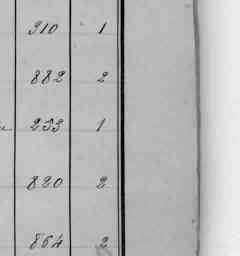 310 1
882 2
233 1
820 2
864 2